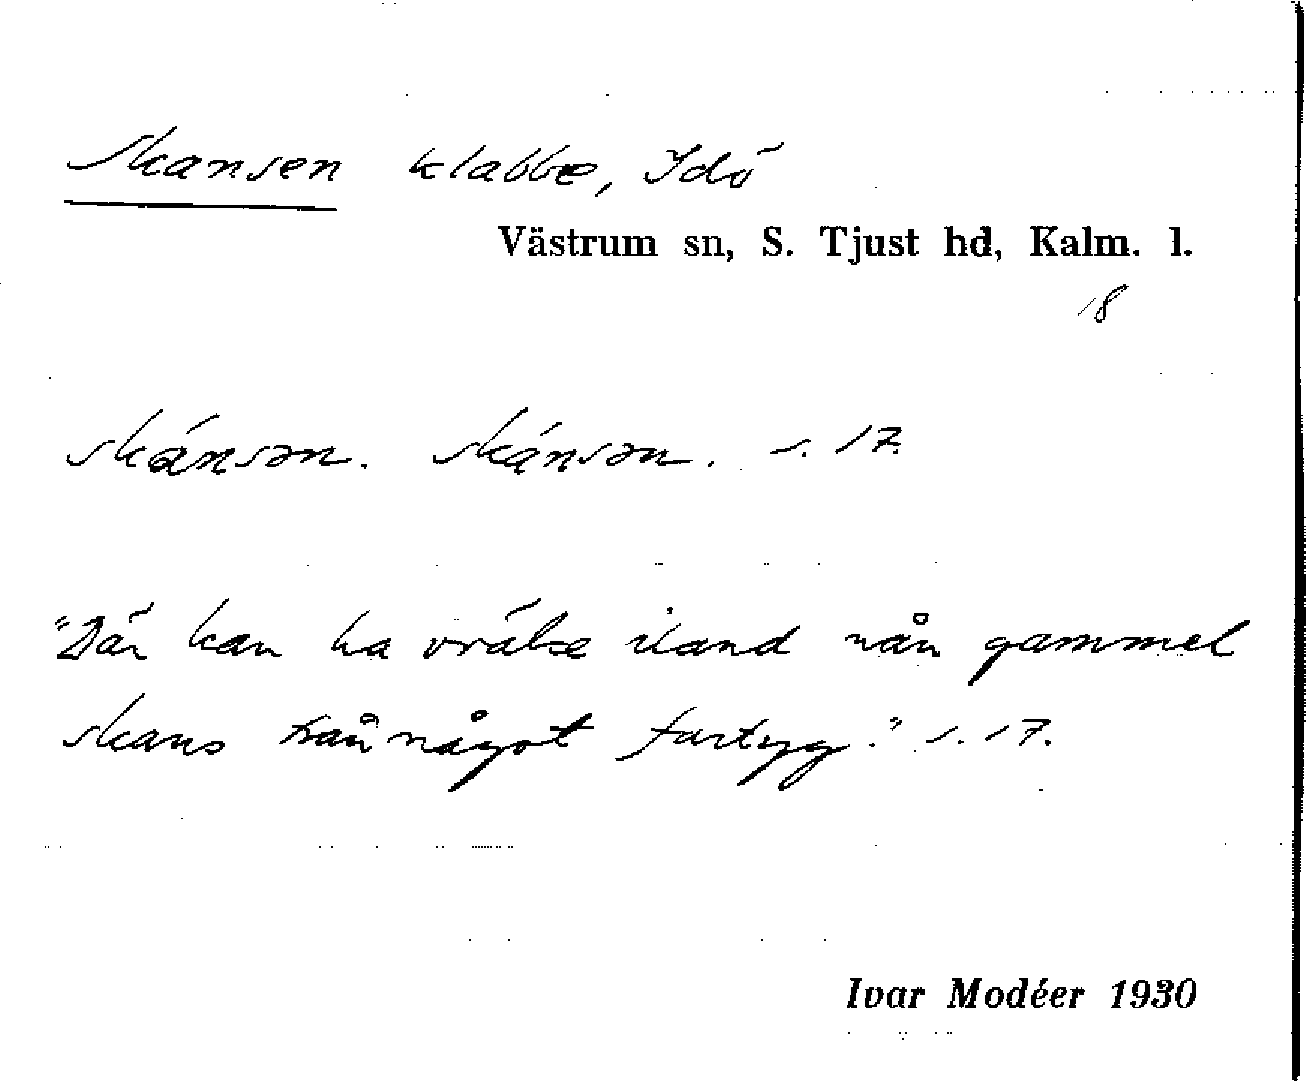 Skansen klabbe, Idö
Västrum sn, S. Tjust hd, Kalm. l.
18
skánsən. skánsən. s. 17.
"Där kan ha vräkt iland nån gammel
skans från något fartyg." s. 17.
Ivar Modéer 1930